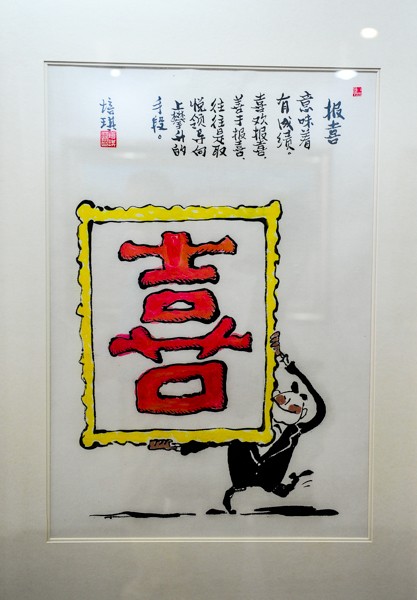 报喜
意味着
有成绩.
喜欢报喜.
善于报喜.
往往是取
悦领导向
上攀升的
手段。
培琪
喜